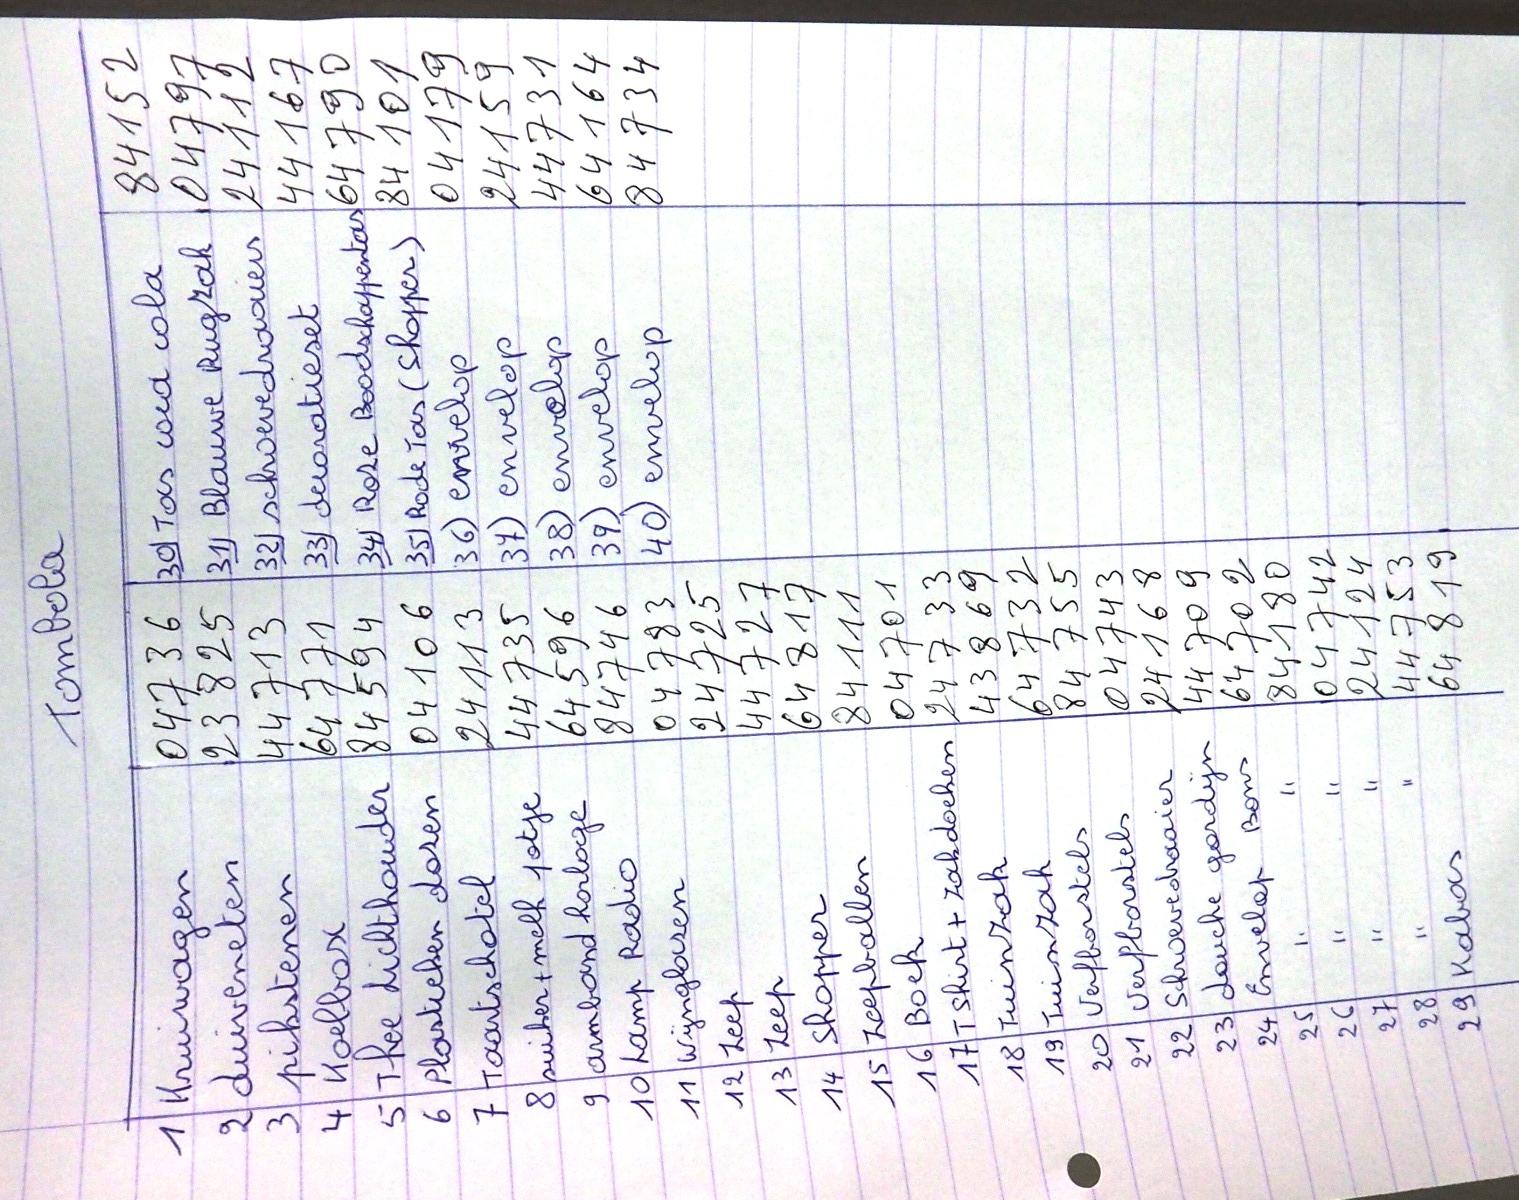 Tombola
1 Kruiwagen 04736
2 duiveneten 23825
3 pikstenen 44713
4 Koelbox 64771
5 Thee Lichthouder 84594
6 Plastieken dozen 04106
7 Taartschotel 24113
8 suiker + melk potje 44735
9 armband horloge 64596
10 Lamp Radio 84746
11 Wijnglazen 04783
12 Zeep 24725
13 Zeep 44727
14 Shopper 64817
15 Zeepballen 84111
16 Boek 04701
17 T Shirt + Zakdoeken 24733
18 TuinZak 43869
19 TuinZak 64732
20 Verfborstels 84755
21 Verfborstels 04743
22 Schroevedraaier 24168
23 douche gordijn 44709
24 Envelop Bons 64702
25 " " 84180
26 " " 04742
27 " " 24124
28 " " 44753
29 Kabas 64819
30) Tas coca cola 84152
31) Blauwe Rugzak 04797
32) schroevedraaiers 24112
33) decoratieset 44167
34) Roze Boodschappentas 64790
35) Rode Tas (Shopper) 84101
36) envelop 04179
37) envelop 24159
38) envelop 44731
39) envelop 64164
40) envelop 84734